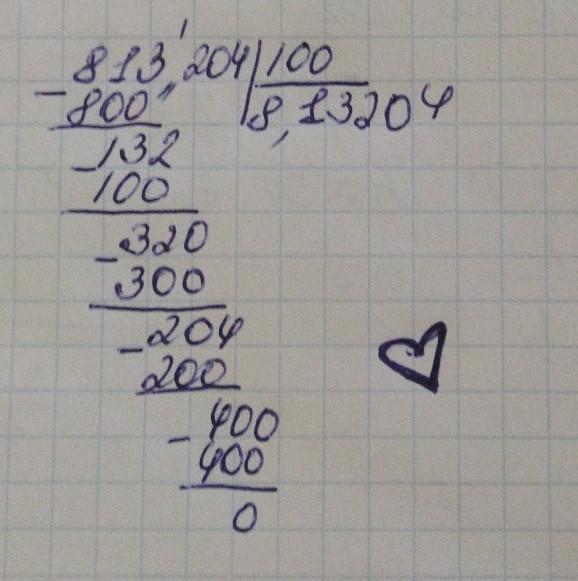 813,204 | 100
- 800 | 8,13204
- 132
100
- 320
300
- 204
200
- 400
400
0